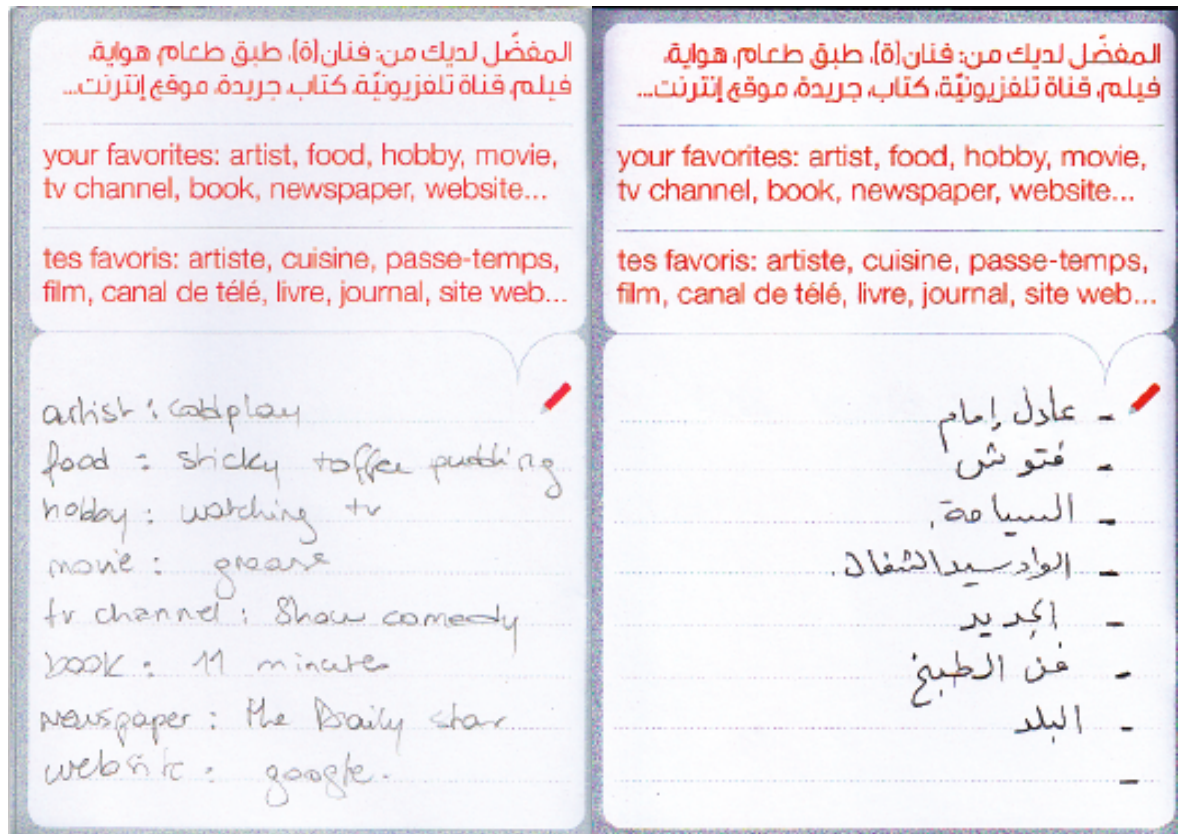 المفضّل لديك من: فنان(ة)، طبق طعام، هواية،
فيلم، قناة تلفزيونيّة، كتاب، جريدة، موقع إنترنت...
your favorites: artist, food, hobby, movie,
tv channel, book, newspaper, website...
tes favoris: artiste, cuisine, passe-temps,
film, canal de télé, livre, journal, site web...
artist : coldplay
food : sticky toffee pudding
hobby : watching tv
movie : grease
tv channel : Show comedy
book : 11 minutes
newspaper : the Daily star
website : google.
المفضّل لديك من: فنان(ة)، طبق طعام، هواية،
فيلم، قناة تلفزيونيّة، كتاب، جريدة، موقع إنترنت...
your favorites: artist, food, hobby, movie,
tv channel, book, newspaper, website...
tes favoris: artiste, cuisine, passe-temps,
film, canal de télé, livre, journal, site web...
- عادل إمام
- فتوش
- السياحة.
- الواد سيد الشغال.
- الجديد
- فن الطبخ
- البلد
-